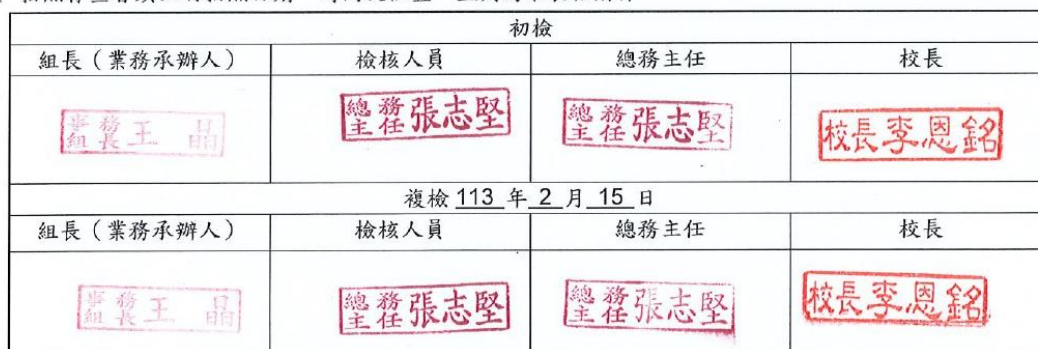 初檢
組長（業務承辦人） 檢核人員 總務主任 校長
事務組長 王晶 總務主任 張志堅 總務主任 張志堅 校長李恩銘
複檢 113 年 2 月 15 日
組長（業務承辦人） 檢核人員 總務主任 校長
事務組長 王晶 總務主任 張志堅 總務主任 張志堅 校長李恩銘